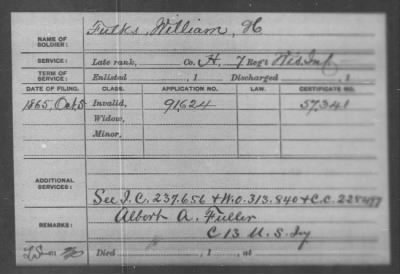 NAME OF SOLDIER: Fulks, William, H
SERVICE: Late rank, Co. H, 7 Reg't Wis Inf
TERM OF SERVICE: Enlisted , 1 Discharged , 1
DATE OF FILING. CLASS. APPLICATION NO. LAW. CERTIFICATE NO.
1865, Oct, 5 Invalid, 91,624 57,341
Widow,
Minor,
ADDITIONAL SERVICES: See I.C. 237.656 + W.O. 313.840 + C.C.
REMARKS: Albert A. Fuller
C 13 U.S. Iy
Died , 1 , at